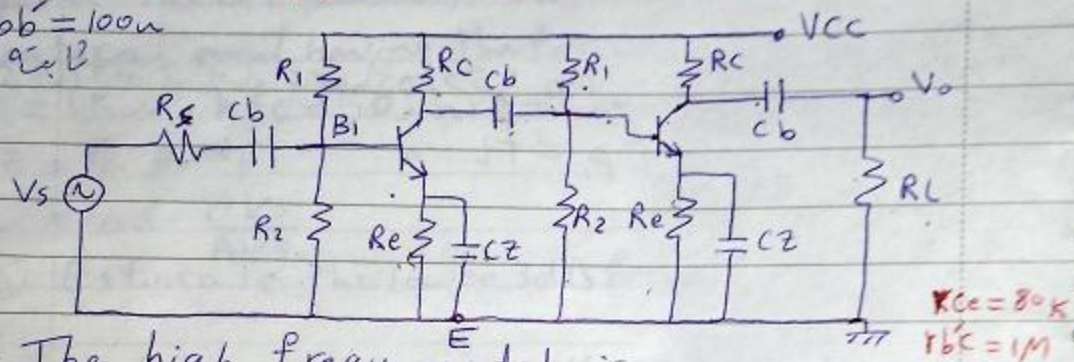 bb' = 100Ω
ثابتة
VCC
R1
RC
Cb
R1
RC
Vo
Rs
Cb
B1
Cb
Vs
R2
Re
CZ
R2
Re
CZ
RL
E
rce = 80K
rb'c = 1M
The high